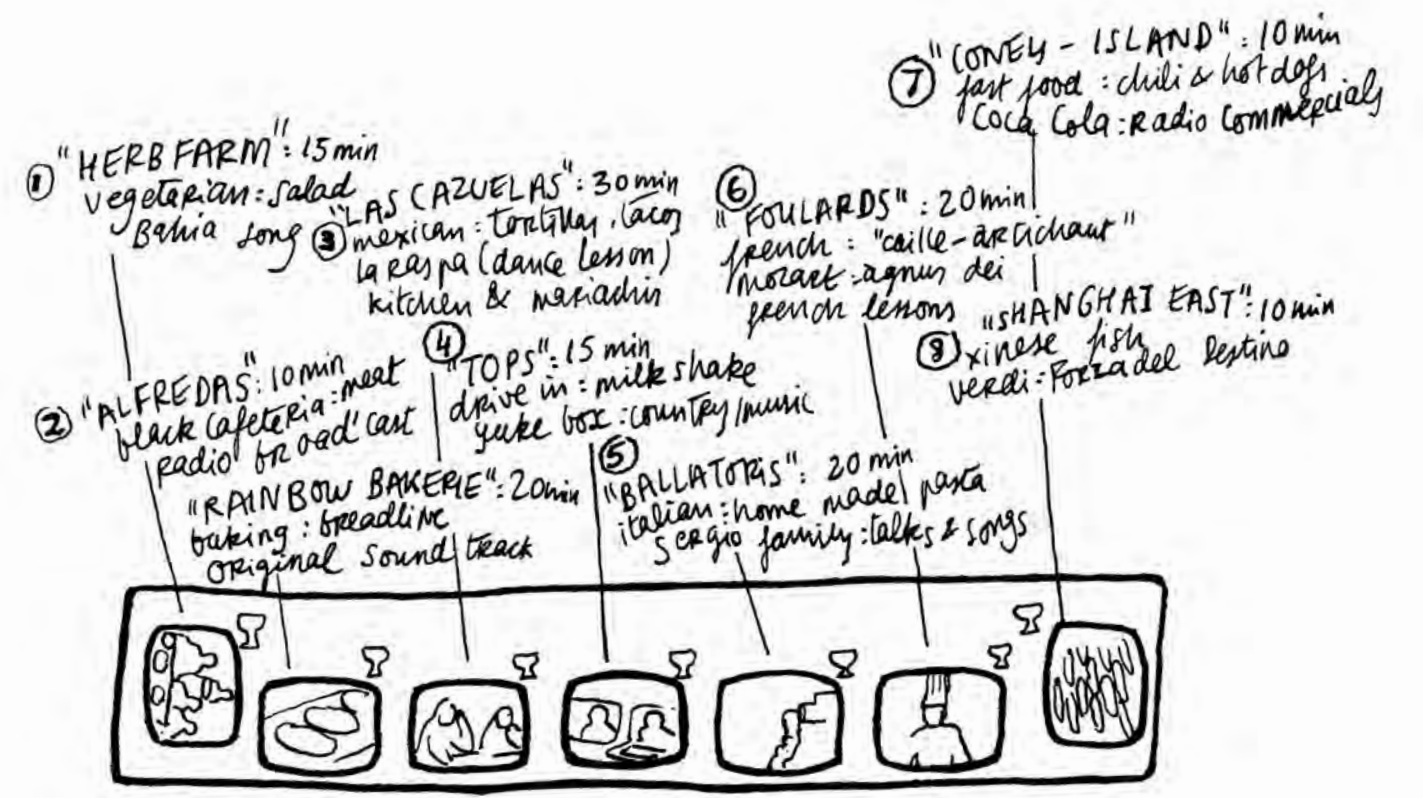 ① "HERB FARM": 15 min
vegetarian: salad
Bahia song
② "ALFREDAS": 10 min
black cafeteria: meat
radio broad'cast
"RAINBOW BAKERIE": 20 min
baking: breadline
original sound track
③ "LAS CAZUELAS": 30 min
mexican: tortillas, tacos
la raspa (dance lesson)
kitchen & mariachis
④ "TOPS": 15 min
drive in: milk shake
yuke box: country/music
⑤ "BALLATORIS": 20 min
italian: home made pasta
Sergio family: talks & songs
⑥ "FOULARDS": 20 min
french: "caille-artichaut"
mozart: agnus dei
french lessons
⑦ "CONEY-ISLAND": 10 min
fast food: chili & hot dogs
Coca Cola: Radio Commercials
⑧ "SHANGHAI EAST": 10 min
xinese fish
verdi: Forza del Destino